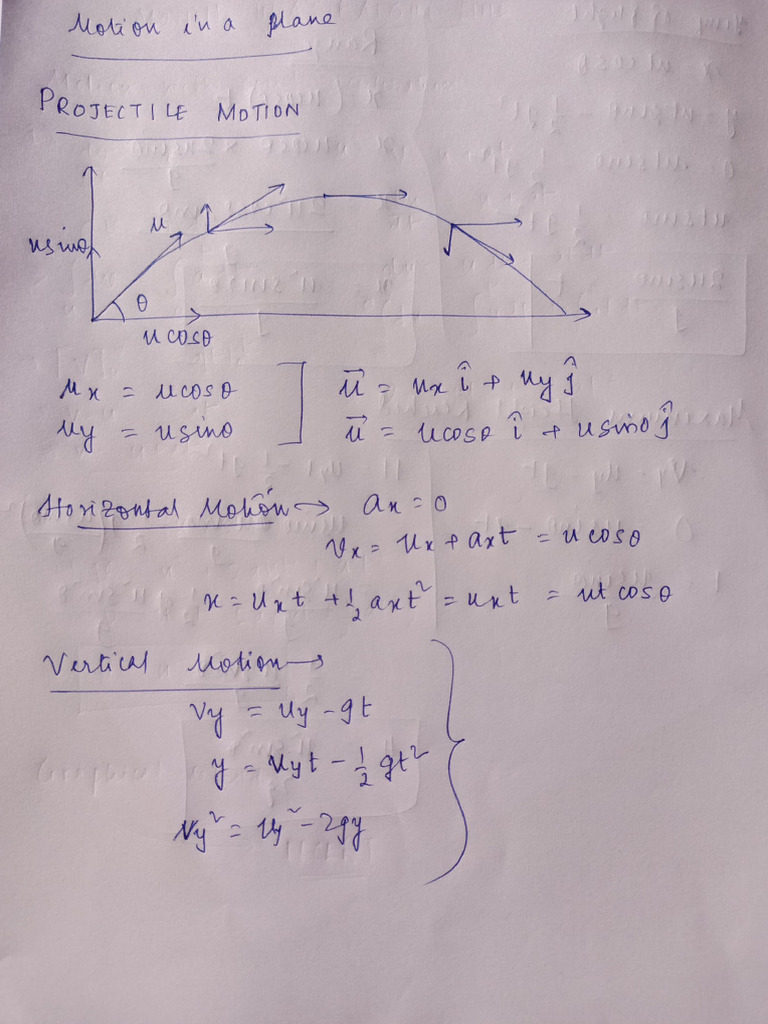 Motion in a plane
PROJECTILE MOTION
u
usinθ
θ
u cosθ
ux = ucosθ
uy = usinθ
u⃗ = ux î + uy ĵ
u⃗ = ucosθ î + usinθ ĵ
Horizontal Motion → ax = 0
vx = ux + axt = u cosθ
x = uxt + 1/2 axt² = uxt = ut cosθ
Vertical Motion →
vy = uy - gt
y = uyt - 1/2 gt²
vy² = uy² - 2gy